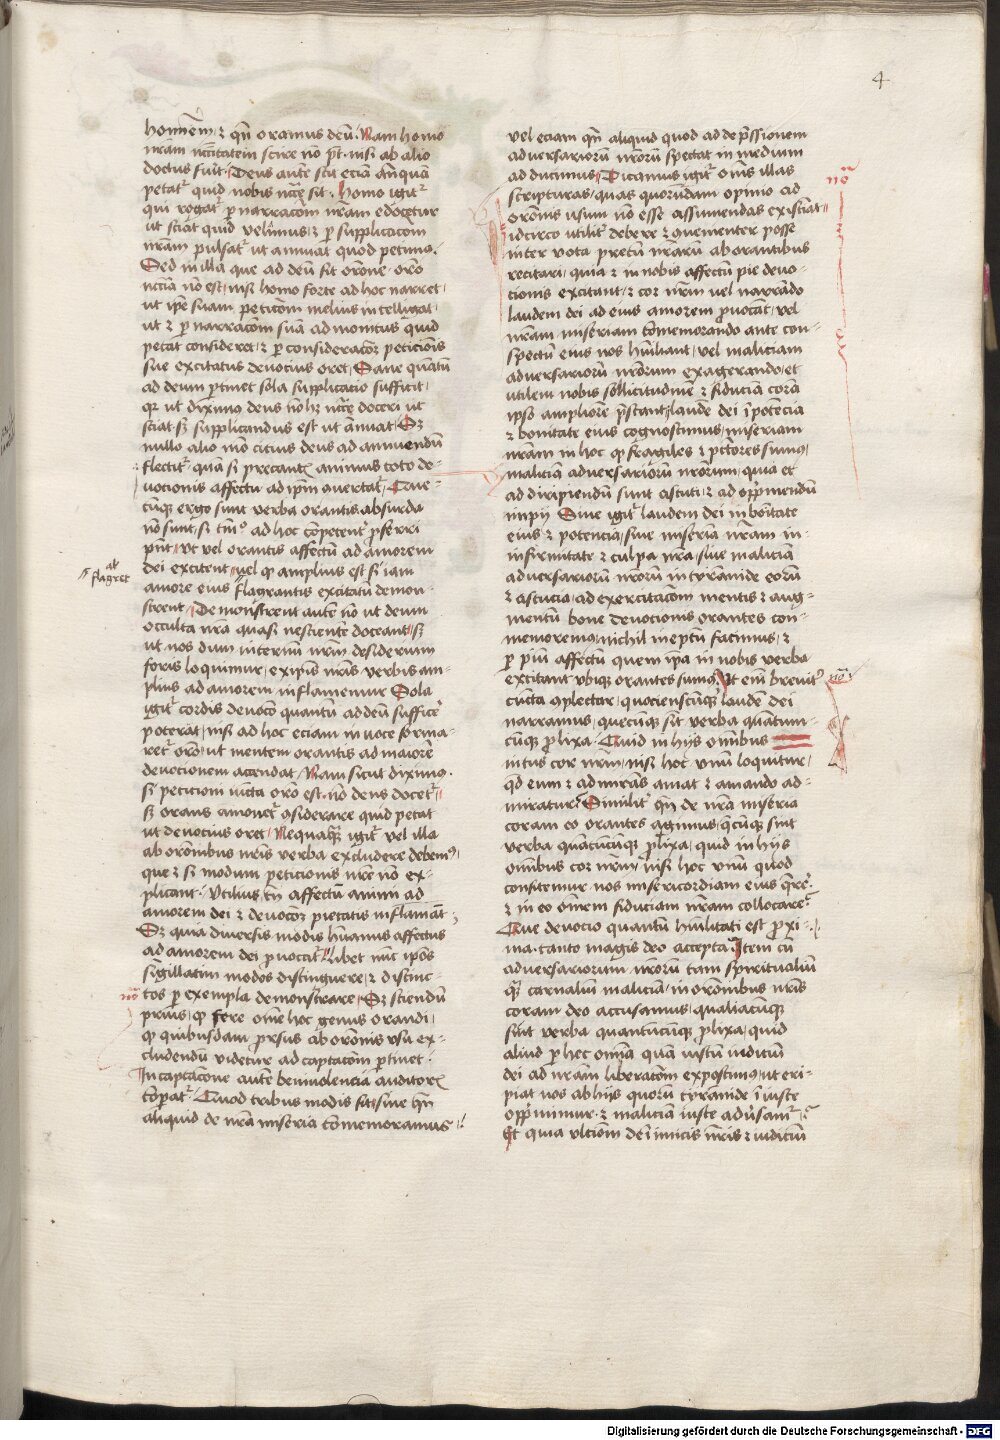 4
hominem, et qn̄ oramus deū. Nam homo
nr̄am nc̄citatem scire nō pt̄ nisi ab alio
doctus fuit. Deus autē scit eciā anq̄uā
petat᷑ quid nobis nc̄ce sit. Homo igit᷑
qui rogat᷑ ꝑ narracōm nr̄am edocetur
ut sciat quid velimus, ⁊ ꝑ supplicacōm
nr̄am pulsat᷑ ut annuat quod petimꝰ.
Sed in illa que ad deū fit orōne. orō
nc̄ria nō est, nisi homo forte ad hoc narret,
ut ip̄e suam peticōem melius intelligat,
ut ⁊ ꝑ narracōm suā admonitus quid
petat consideret, ⁊ ꝑ consideracōem peticionis
sue excitatus devocius oret. Sane quātū
ad deum ꝑtinet sola supplicacio sufficit,
qr ut diximꝰ deus nō hꝫ nc̄ce doceri ut
sciat sꝫ supplicandus est ut annuat. Sꝫ
nullo alio mō citius deus ad annuendū
flectit᷑, quā si precantꝭ animus toto de-
uocionis affectu ad ip̄m auertat᷑. Que-
cūqꝫ ergo sunt verba orantis absurda
nō sunt, si tm̄ ad hoc cōpetent᷑ ꝓferri
pn̄t, ut vel orantis affectū ad amorem
dei excitent, vel qꝫ amplius est si iam
al flagret
amore eius flagrantis excitatū demon-
strent. Demonstrent autē nō ut deum
occulta nr̄a quasi nescientē doceant, sꝫ
ut nos dum internū nr̄m desiderium
foris loquimur, ex ip̄is nr̄is verbis am-
plius ad amorem inflamemur. Sola
igit᷑ cordis devocō quantū ad deū sufficē
poterat, nisi ad hoc eciam in voce forma-
ret᷑ orō, ut mentem orantis ad maiorē
devotionem accendat. Nam sicut diximꝰ.
si peticioni iūcta orō est, nō deus docet᷑,
sꝫ orans amonet᷑ ꝯsiderare quid petat
ut devocius oret. Nequaqꝫ igit᷑ vel illa
ab orōnibus nr̄is verba excludere debemꝰ,
que ⁊ si modum peticionis nr̄e nō ex-
plicant. Utilius tn̄ affectū animi ad
amorem dei ⁊ devocōem pietatis inflāmāt.
Sꝫ quia diversis modis hūanus affectus
ad amorem dei ꝓvocat᷑. Libet nūc ip̄os
sigillatim modos distinguere, ⁊ distinc-
nō
tos ꝑ exempla demonstrare. Sꝫ sciendū
prius, qꝫ fere om̄e hoc genus orandi,
qꝫ quibusdam ꝓrsus ab orōnis usu ex-
cludendū videtur ad captacōm ꝑtinet.
In captacōne autē beniuolencia auditorꝭ
cōparat᷑. Quod tribus modis fit, siue qn̄
aliquid de nr̄a miseria cōmemoramus,
vel eciam qn̄ aliquid quod ad dep̄ssionem
adversariorū nr̄orū spectat in medium
adducimus. Dicamus igit᷑ om̄s illas
nō
scripturas, quas quorūdam opinio ad
orōnis usum nō esse assumendas existīat,
idcirco utilit᷑ debere ⁊ ꝯuenienter posse
inter vota precū nr̄arū ab orantibus
recitari, quia ⁊ in nobis affectū pie devo-
tionis excitant, ⁊ cor nr̄m vel narrādo
laudem dei ad eius amorem ꝓuocāt, vel
nr̄am miseriam cōmemorando ante con-
spectū eius nos hūiliant, vel maliciam
adversariorū nr̄orum exagerando, et
utilem nobis sollicitudinē ⁊ fiduciā corā
ip̄so ampliorē p̄stant, laude dei ī potēcia
⁊ bonitate eius cognoscimus, miseriam
nr̄am in hoc qꝫ fragiles ⁊ pc̄tores sumꝰ,
maliciā adversariorū nr̄orum, quia et
ad diripiendū sunt astuti, ⁊ ad opp̄mendū
impij. Siue igit᷑ laudem dei in bōitate
eius ⁊ potencia, siue miseriā nr̄am in
infirmitate ⁊ culpa nr̄a, siue maliciā
adversariorū nr̄orū in tyrānide eorū
⁊ astucia, ad exercitacōm mentis ⁊ aug-
mentū bone devocionis orantes com-
memoremꝰ, nichil ineptū facimus, ⁊
ꝑ piū affectū quem ip̄a in nobis verba
excitant ubiqꝫ orantes sumꝰ. Ut em̄ brevit᷑
nō
cūcta ꝯplectar, quocienscūqꝫ laudē dei
narramus, quecūqꝫ sīt verba quātum-
cūqꝫ ꝓlixa. Quid in hijs om̄ibus
intus cor nr̄m, nisi hoc unū loquitur,
qd eum ⁊ admirās amat ⁊ amando ad-
miratur. Similit᷑ qn̄ de nr̄a miseria
coram eo orantes agimus, qc̄ūqꝫ sint
verba quātūcūqꝫ ꝓlixa, quid in hijs
om̄ibus cor nr̄m, nisi hoc unū quod
confitemur nos misericordiam eius q̄rer̄e
⁊ in eo om̄em fiduciam nr̄am collocare.
Que devocio quantū hūilitati est ꝓxi-
ma. tanto magis deo accepta. Item cū
adversariorum nr̄orū tam spiritualiū
qꝫ carnaliū maliciā in orōnibus nr̄is
coram deo accusamus, qualiacūqꝫ
sint verba quantūcūqꝫ ꝓlixa, quid
aliud ꝑ hec om̄ia quā iustū iudiciū
dei ad nr̄am liberacōm expostimꝰ, ut eri-
piat nos ab hijs quorū tyrānide īiuste
opp̄mimur, ⁊ maliciā iuste adūsam᷑.
Et quia ultiōm de inimicis nr̄is ⁊ iudiciū
Digitalisierung gefördert durch die Deutsche Forschungsgemeinschaft - DFG